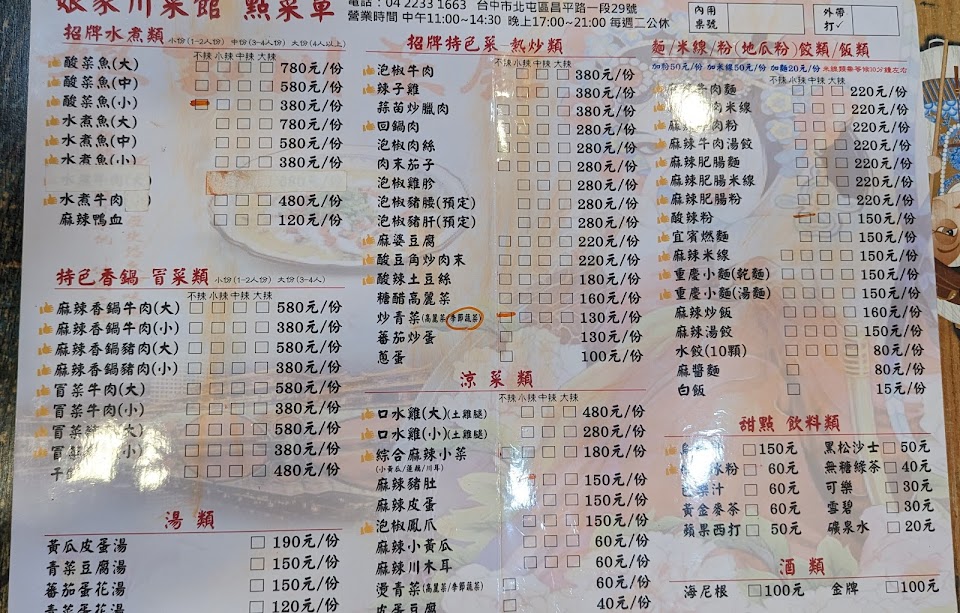 娘家川菜館 點菜單
電話：04 2233 1663 台中市北屯區昌平路一段29號
營業時間 中午11:00~14:30 晚上17:00~21:00 每週二公休
內用
桌號
外帶
打✓
招牌水煮類 小份(1-2人份) 中份(3-4人份) 大份(4人以上)
不辣 小辣 中辣 大辣
酸菜魚(大) 780元/份
酸菜魚(中) 580元/份
酸菜魚(小) 380元/份
水煮魚(大) 780元/份
水煮魚(中) 580元/份
水煮魚(小) 380元/份
水煮牛肉 480元/份
麻辣鴨血 120元/份
特色香鍋 冒菜類 小份(1-2人份) 大份(3-4人)
不辣 小辣 中辣 大辣
麻辣香鍋牛肉(大) 580元/份
麻辣香鍋牛肉(小) 380元/份
麻辣香鍋豬肉(大) 580元/份
麻辣香鍋豬肉(小) 380元/份
冒菜牛肉(大) 580元/份
冒菜牛肉(小) 380元/份
冒菜 (大) 580元/份
冒 (小) 380元/份
干 480元/份
湯類
黃瓜皮蛋湯 190元/份
青菜豆腐湯 150元/份
蕃茄蛋花湯 150元/份
青菜蛋花湯 120元/份
招牌特色菜 熱炒類
不辣 小辣 中辣 大辣
泡椒牛肉 380元/份
辣子雞 380元/份
蒜苗炒臘肉 380元/份
回鍋肉 280元/份
泡椒肉絲 280元/份
肉末茄子 280元/份
泡椒雞胗 280元/份
泡椒豬腰(預定) 280元/份
泡椒豬肝(預定) 280元/份
麻婆豆腐 220元/份
酸豆角炒肉末 220元/份
酸辣土豆絲 180元/份
糖醋高麗菜 160元/份
炒青菜(高麗菜/季節蔬菜) 130元/份
蕃茄炒蛋 130元/份
蔥蛋 100元/份
涼菜類
不辣 小辣 中辣 大辣
口水雞(大)(土雞腿) 480元/份
口水雞(小)(土雞腿) 280元/份
綜合麻辣小菜 180元/份
(小黃瓜/蓮藕/川耳)
麻辣豬肚 150元/份
麻辣皮蛋 150元/份
泡椒鳳爪 150元/份
麻辣小黃瓜 60元/份
麻辣川木耳 60元/份
燙青菜(高麗菜/季節蔬菜) 60元/份
皮蛋豆腐 40元/份
麵/米線/粉(地瓜粉)餃類/飯類
加粉50元/份 加米線50元/份 加麵20元/份
不辣 小辣 中辣 大辣
牛肉麵 220元/份
肉米線 220元/份
肉粉 220元/份
麻辣牛肉湯餃 220元/份
麻辣肥腸麵 220元/份
麻辣肥腸米線 220元/份
麻辣肥腸粉 220元/份
酸辣粉 150元/份
宜賓燃麵 150元/份
麻辣米線 150元/份
重慶小麵(乾麵) 150元/份
重慶小麵(湯麵) 150元/份
麻辣炒飯 160元/份
麻辣湯餃 150元/份
水餃(10顆) 80元/份
麻醬麵 80元/份
白飯 15元/份
甜點 飲料類
150元 黑松沙士 50元
冰粉 60元 無糖綠茶 40元
汁 60元 可樂 30元
黃金麥茶 60元 雪碧 30元
蘋果西打 50元 礦泉水 20元
酒類
海尼根 100元 金牌 100元